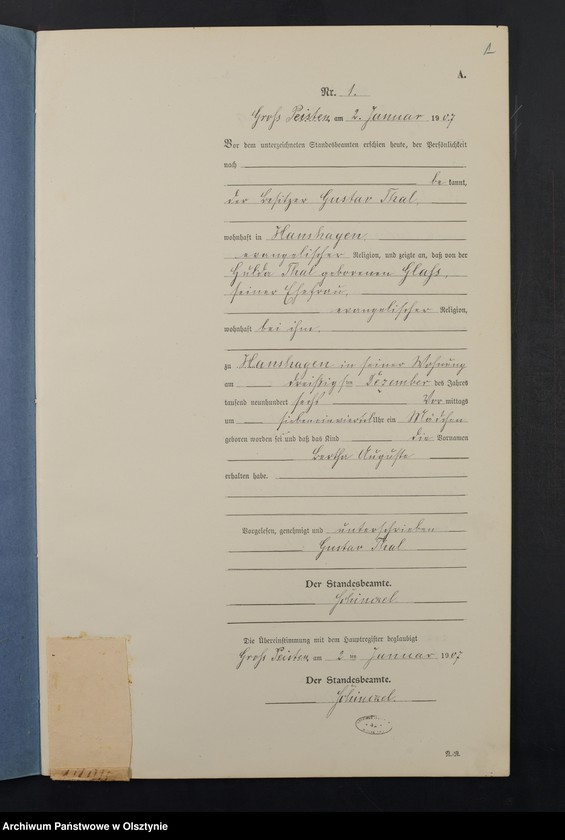 1
A.
Nr. 1.
Groß Peisten am 2. Januar 1907
Vor dem unterzeichneten Standesbeamten erschien heute, der Persönlichkeit
nach
bekannt,
der Besitzer Gustav Thal,
wohnhaft in Hanshagen,
evangelischer Religion, und zeigte an, daß von der
Hulda Thal geborenen Glaß,
seiner Ehefrau,
evangelischer Religion,
wohnhaft bei ihm,
zu Hanshagen in seiner Wohnung
am dreißigsten Dezember des Jahres
tausend neunhundert sechs Vor mittags
um siebeneinviertel Uhr ein Mädchen
geboren worden sei und daß das Kind die Vornamen
Bertha Auguste
erhalten habe.
Vorgelesen, genehmigt und unterschrieben
Gustav Thal
Der Standesbeamte.
Die Übereinstimmung mit dem Hauptregister beglaubigt
Groß Peisten am 2ten Januar 1907
Der Standesbeamte.
Archiwum Państwowe w Olsztynie